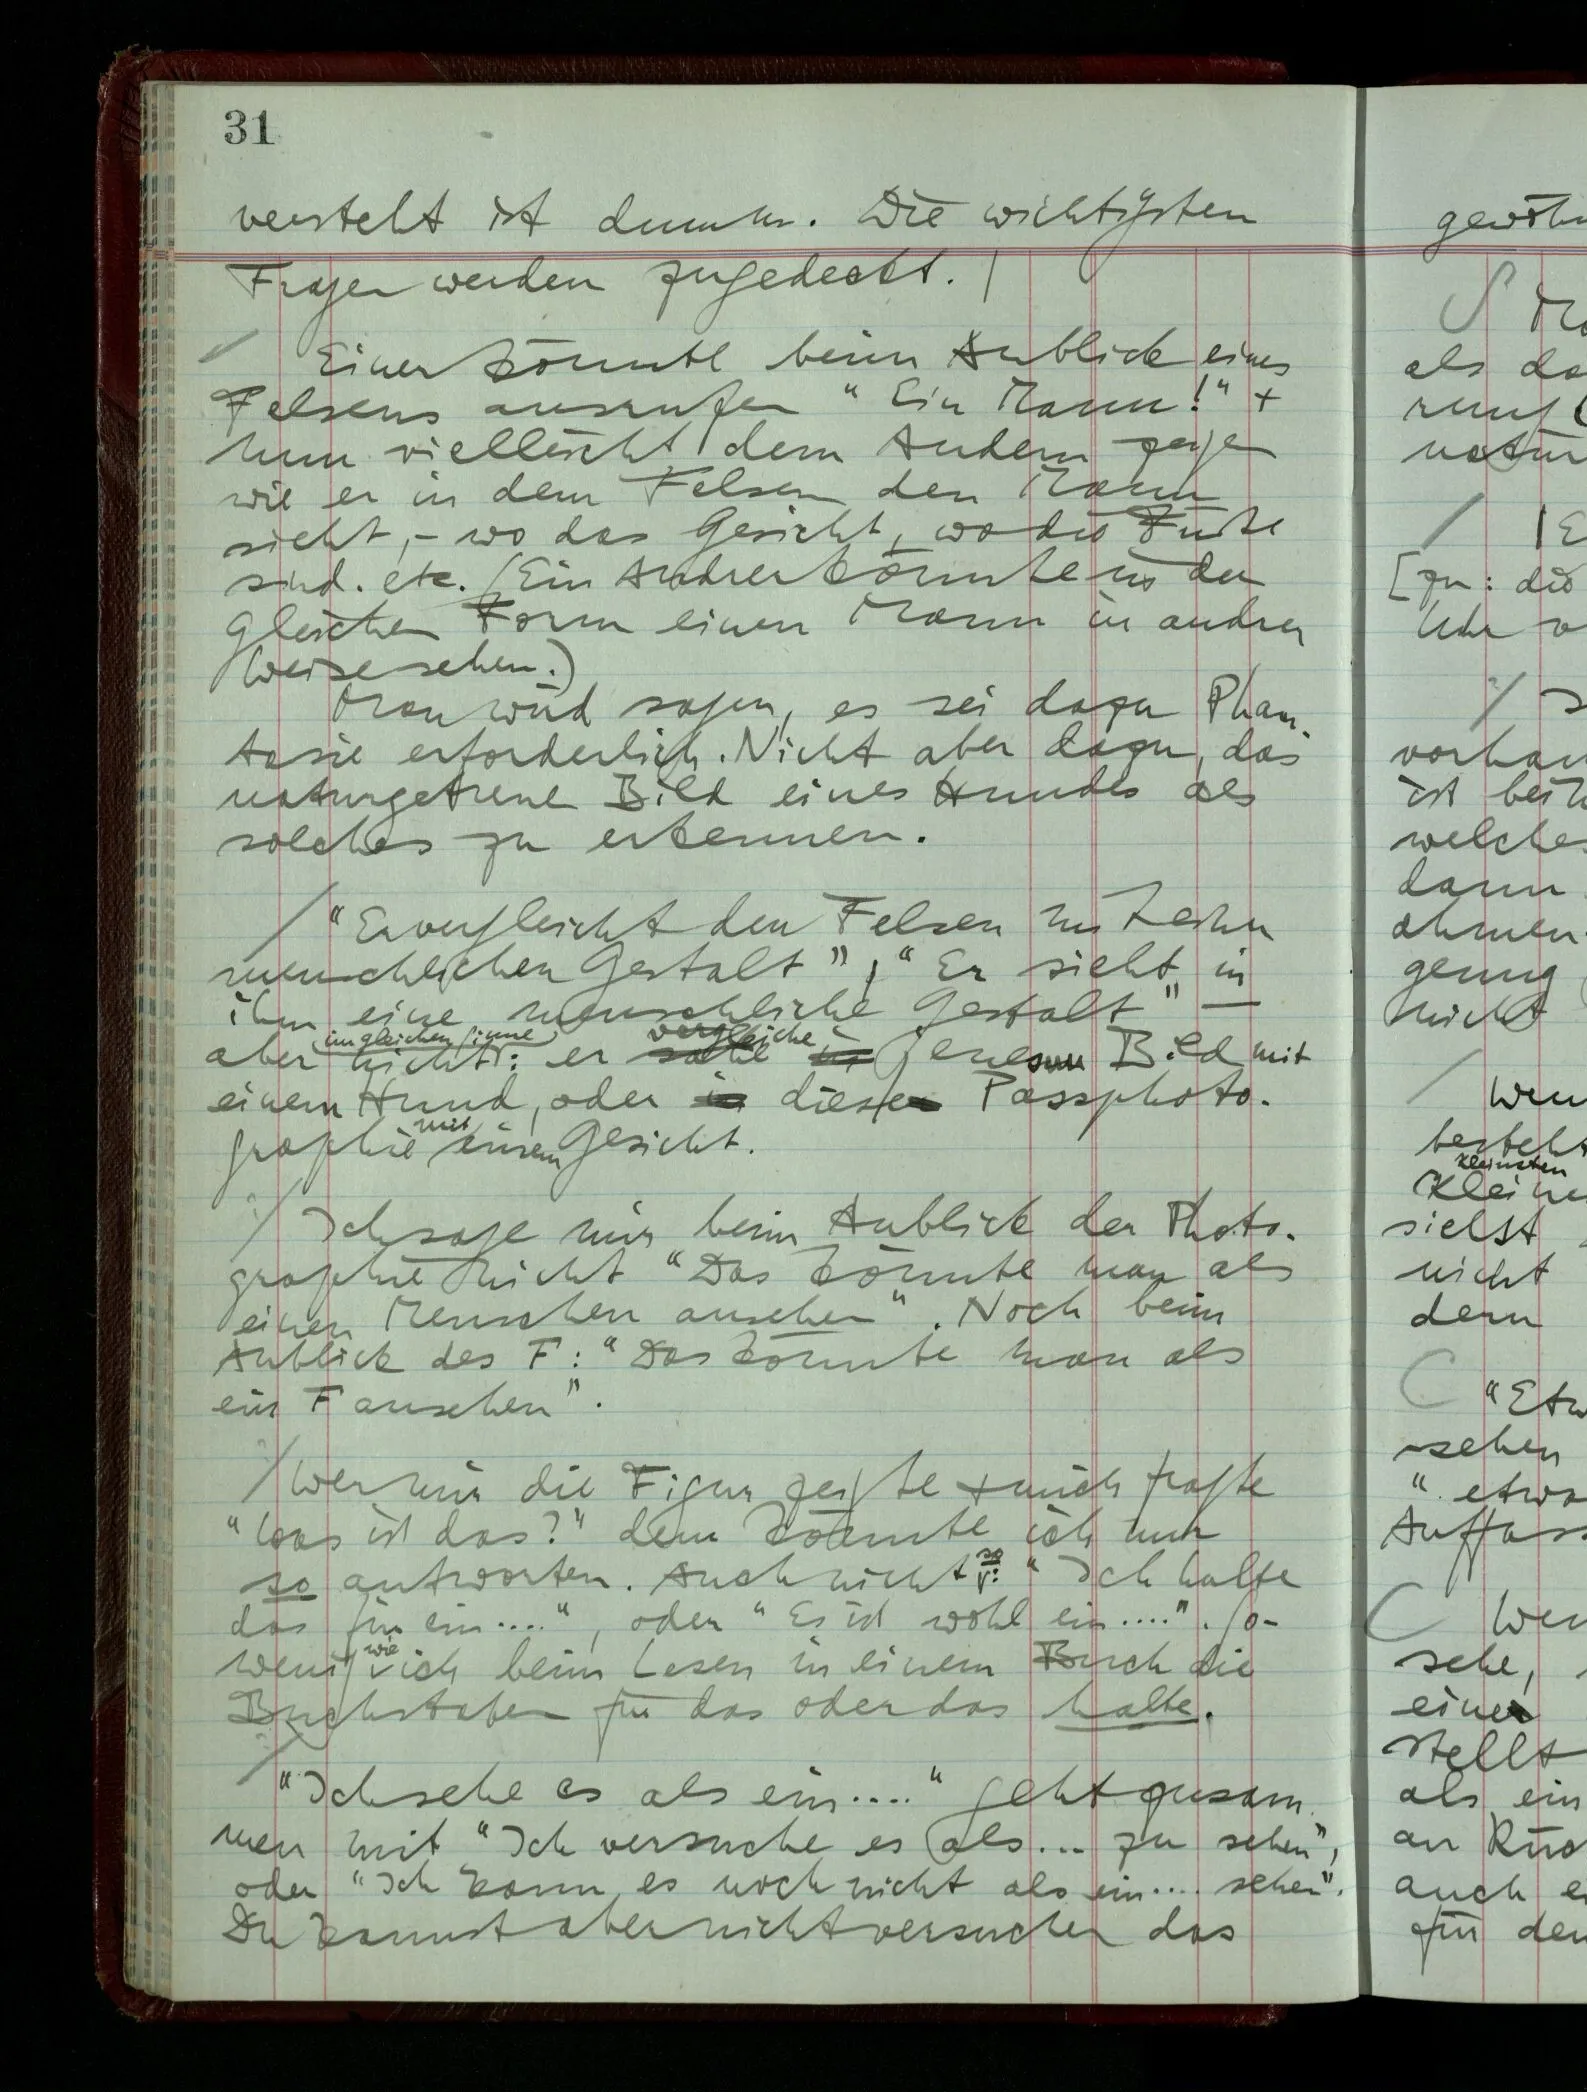 31
versteht ist dumm. Die wichtigsten
Fragen werden zugedeckt. |
/ Einer könnte beim Anblick eines
Felsens ausrufen “Ein Mann!” +
nun vielleicht dem Andern zeigen
wie er in dem Felsen den Mann
sieht, – wo das Gesicht, wo die Füße
sind. etc. (Ein Andrer könnte in der
gleichen Form einen Mann in andrer
Weise sehen.)
Man wird sagen, es sei dazu Phan-
tasie erforderlich. Nicht aber dazu, das
naturgetreue Bild eines Hundes als
solches zu erkennen.
/ “Er vergleicht den Felsen mit einer
menschlichen Gestalt”, “Er sieht in
ihm eine menschliche Gestalt” –
im gleichen Sinne vergleiche
aber nicht: er sähe in jenes Bild mit
einem Hund, oder in diese Passphoto-
mit
graphie einem Gesicht.
/ Ich sage mir beim Anblick der Photo-
graphie nicht “Das könnte man als
einen Menschen ansehen”. Noch beim
Anblick des F: “Das könnte man als
ein F ansehen”.
/ Wer mir die Figur zeigte + mich fragte
“Was ist das?” dem könnte ich nur
so antworten. Auch nicht so: “Ich halte
das für ein....”, oder “Es ist wohl ein....”. So-
wie
wenig ich beim Lesen in einem Buch die
Buchstaben für das oder das halte.
/
“Ich sehe es als ein....” geht zusam-
men mit “Ich versuche es als... zu sehen”,
oder “Ich kann es noch nicht als ein.... sehen”.
Du kannst aber nicht versuchen das
als
vorhan
ist
welches
dann
genug
nicht
/
kleinsten
siehst
nicht
dem
C “Etw
sehen
“etwa
C
sehe,
einer
stellt
als ein
an
auch
für den